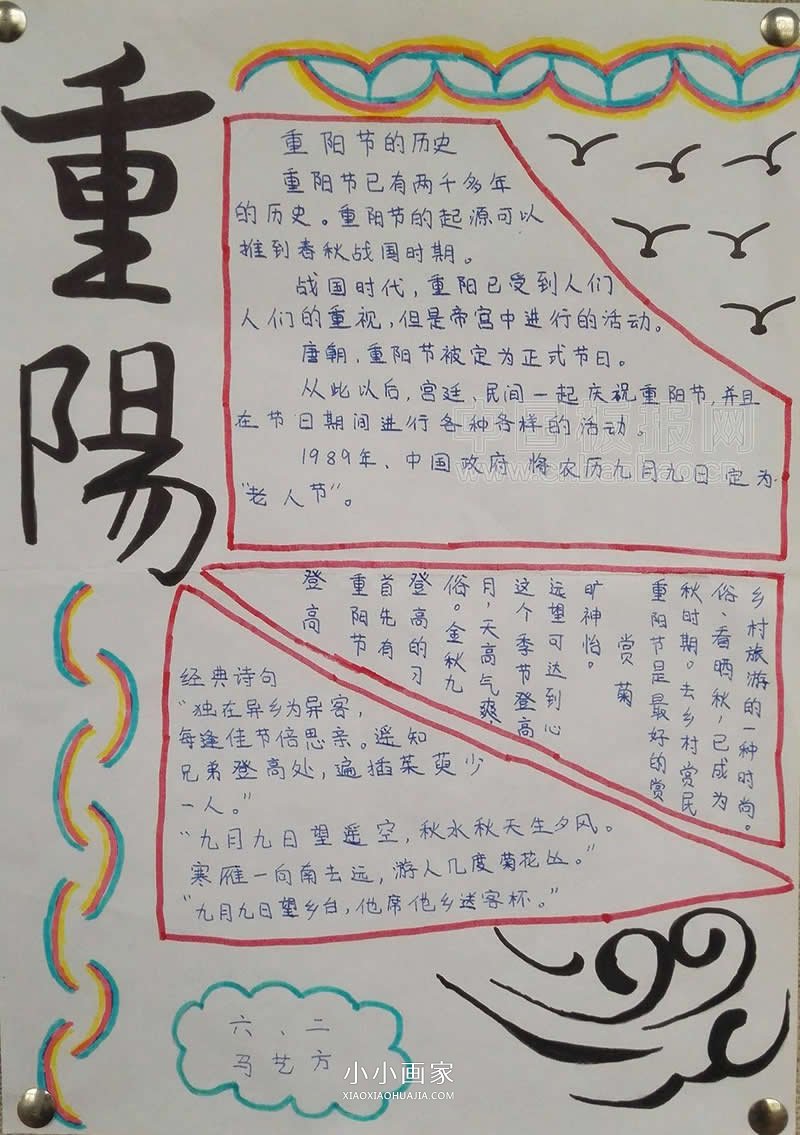 重陽
重阳节的历史
重阳节已有两千多年
的历史。重阳节的起源可以
推到春秋战国时期。
战国时代，重阳已受到人们
人们的重视，但是帝宫中进行的活动。
唐朝，重阳节被定为正式节日。
从此以后，宫廷、民间一起庆祝重阳节，并且
在节日期间进行各种各样的活动。
1989年、中国政府将农历九月九日定为
“老人节”。
登高
重阳节
首先有
登高的习
俗。金秋九
月，天高气爽，
这个季节登高
远望可达到心
旷神怡。
赏菊
重阳节是最好的赏
秋时期。去乡村赏民
俗、看晒秋，已成为
乡村旅游的一种时尚。
经典诗句
“独在异乡为异客，
每逢佳节倍思亲。遥知
兄弟登高处，遍插茱萸少
一人。”
“九月九日望遥空，秋水秋天生夕风。
寒雁一向南去远，游人几度菊花丛。”
“九月九日望乡台，他席他乡送客杯。”
六、二
马艺方
中国板报网
小小画家
XIAOXIAOHUAJIA.COM